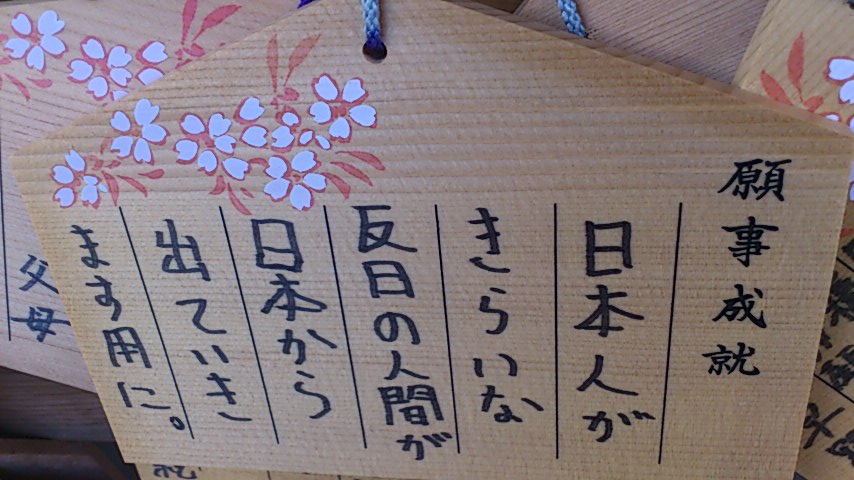 願事成就
日本人が
きらいな
反日の人間が
日本から
出ていき
ます用に。
父母